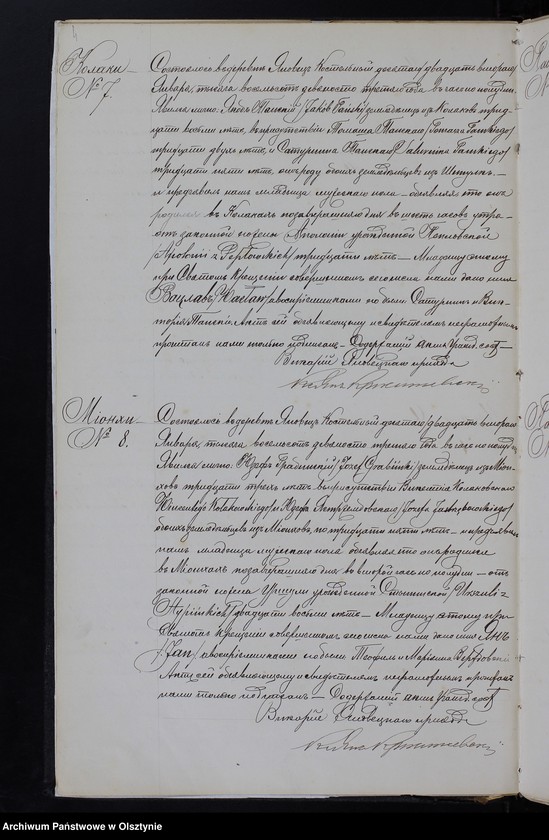 Колаки
№ 7.
Состоялось въ деревнѣ Яновецъ Костельный десятаго /двадцать втораго/
Января, тысяча восемьсотъ девяносто третьяго года въ часъ по полудни.
Явился лично Якобъ Таньскій /Jakób Tański/ земледѣлецъ изъ Колаковъ трид-
цати восьми лѣтъ, въ присутствіи Томаша Таньскаго /Tomasza Tańskiego/
тридцати двухъ лѣтъ, и Сатурнина Таньскаго /Saturnina Tańskiego/
тридцати пяти лѣтъ, обоихъ земледѣльцевъ изъ
и предъявилъ намъ младенца мужескаго пола объявляя, что онъ
родился въ Колакахъ позавчерашняго дня въ шесть часовъ утра
отъ законной его жены Аполоніи урожденной Пепловской
/Apolonii z Pepłowskich/ тридцати лѣтъ — Младенцу этому
при Святомъ Крещеніи совершенномъ сего числа нами дано имя
Вацлавъ /Wacław/ а воспріемниками его были Сатурнинъ и Вик-
торія Таньскіе. Актъ сей объявляющему и свидѣтелямъ неграмотнымъ
прочитанъ нами только подписанъ — Содержащій акты гражд. сост.
Викарій Яновецкаго прихода
Міонки
№ 8.
Состоялось въ деревнѣ Яновецъ Костельный десятаго /двадцать втораго/
Января, тысяча восемьсотъ девяносто третьяго года въ часъ по полудни
Явился лично Юзефъ Грабинскій /Józef Grabiński/ земледѣлецъ изъ Міон-
ковъ тридцати трехъ лѣтъ въ присутствіи Викентія Колаковскаго
/Wincentego Kołakowskiego/ и Юзефа /Józefa
обоихъ земледѣльцевъ изъ Міонковъ, по тридцати пяти лѣтъ — и предъявилъ
намъ младенца мужескаго пола объявляя, что онъ родился
въ Міонкахъ позавчерашняго дня во второй часъ по полудни — отъ
законной его жены Уршули урожденной /Urszuli z
двадцати восьми лѣтъ — Младенцу этому при
Святомъ Крещеніи совершенномъ сего числа нами дано имя Янъ
/Jan/ а воспріемниками его были Теофиль и Маріанна
Актъ сей объявляющему и свидѣтелямъ неграмотнымъ прочитанъ
нами только подписанъ — Содержащій акты гражд. сост.
Викарій Яновецкаго прихода
Archiwum Państwowe w Olsztynie